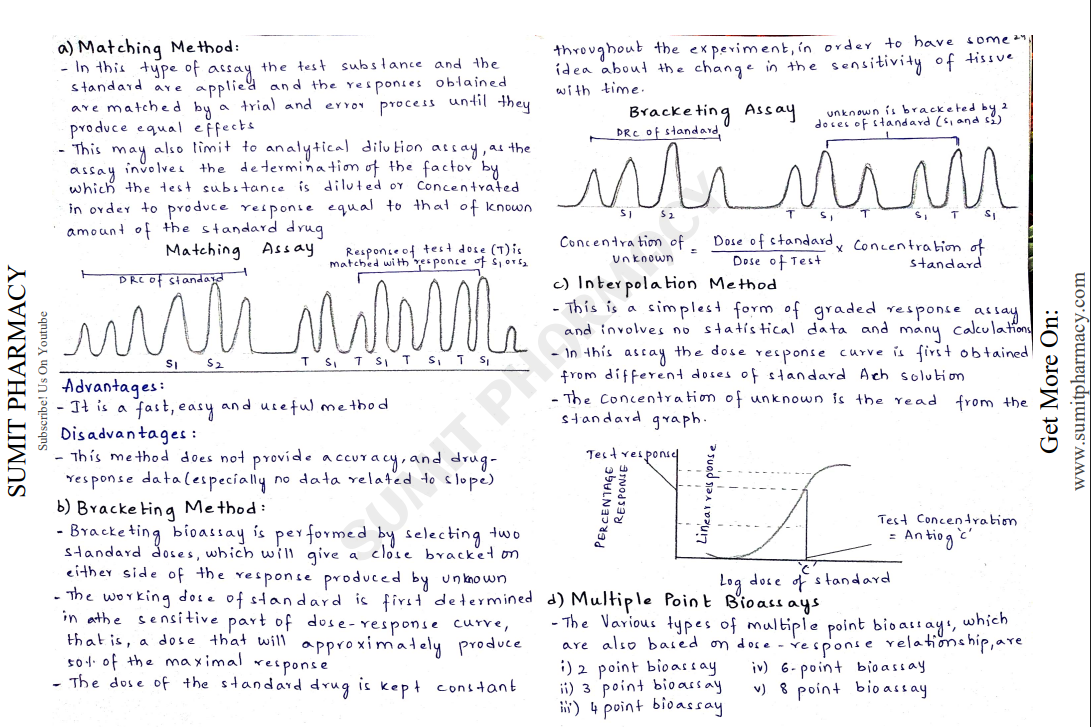 SUMIT PHARMACY
Subscribe! Us On Youtube
a) Matching Method:
- In this type of assay the test substance and the
standard are applied and the responses obtained
are matched by a trial and error process until they
produce equal effects
- This may also limit to analytical dilution assay, as the
assay involves the determination of the factor by
which the test substance is diluted or Concentrated
in order to produce response equal to that of known
amount of the standard drug
Matching Assay
Response of test dose (T) is
matched with response of S1 or S2
DRC of standard
S1 S2 T S1 T S1 T S1 T S1
Advantages:
- It is a fast, easy and useful method
Disadvantages:
- This method does not provide accuracy, and drug-
response data (especially no data related to slope)
b) Bracketing Method:
- Bracketing bioassay is performed by selecting two
standard doses, which will give a close bracket on
either side of the response produced by unknown
- The working dose of standard is first determined
in athe sensitive part of dose-response curve,
that is, a dose that will approximately produce
50% of the maximal response
- The dose of the standard drug is kept constant
throughout the experiment, in order to have some
idea about the change in the sensitivity of tissue
with time.
Bracketing Assay
unknown is bracketed by 2
doses of standard (S1 and S2)
DRC of standard
S1 S2 T S1 T S1 T S1
Concentration of Unknown = Dose of standard / Dose of Test × Concentration of standard
c) Interpolation Method
- This is a simplest form of graded response assay
and involves no statistical data and many calculations
- In this assay the dose response curve is first obtained
from different doses of standard Ach solution
- The Concentration of unknown is the read from the
standard graph.
Test response
PERCENTAGE
RESPONSE
Linear response
Test Concentration
= Antiog 'c'
'C'
Log dose of standard
d) Multiple Point Bioassays
- The Various types of multiple point bioassays, which
are also based on dose-response relationship, are
i) 2 point bioassay iv) 6-point bioassay
ii) 3 point bioassay v) 8 point bioassay
iii) 4 point bioassay
Get More On:
www.sumitpharmacy.com
SUMIT PHARMACY